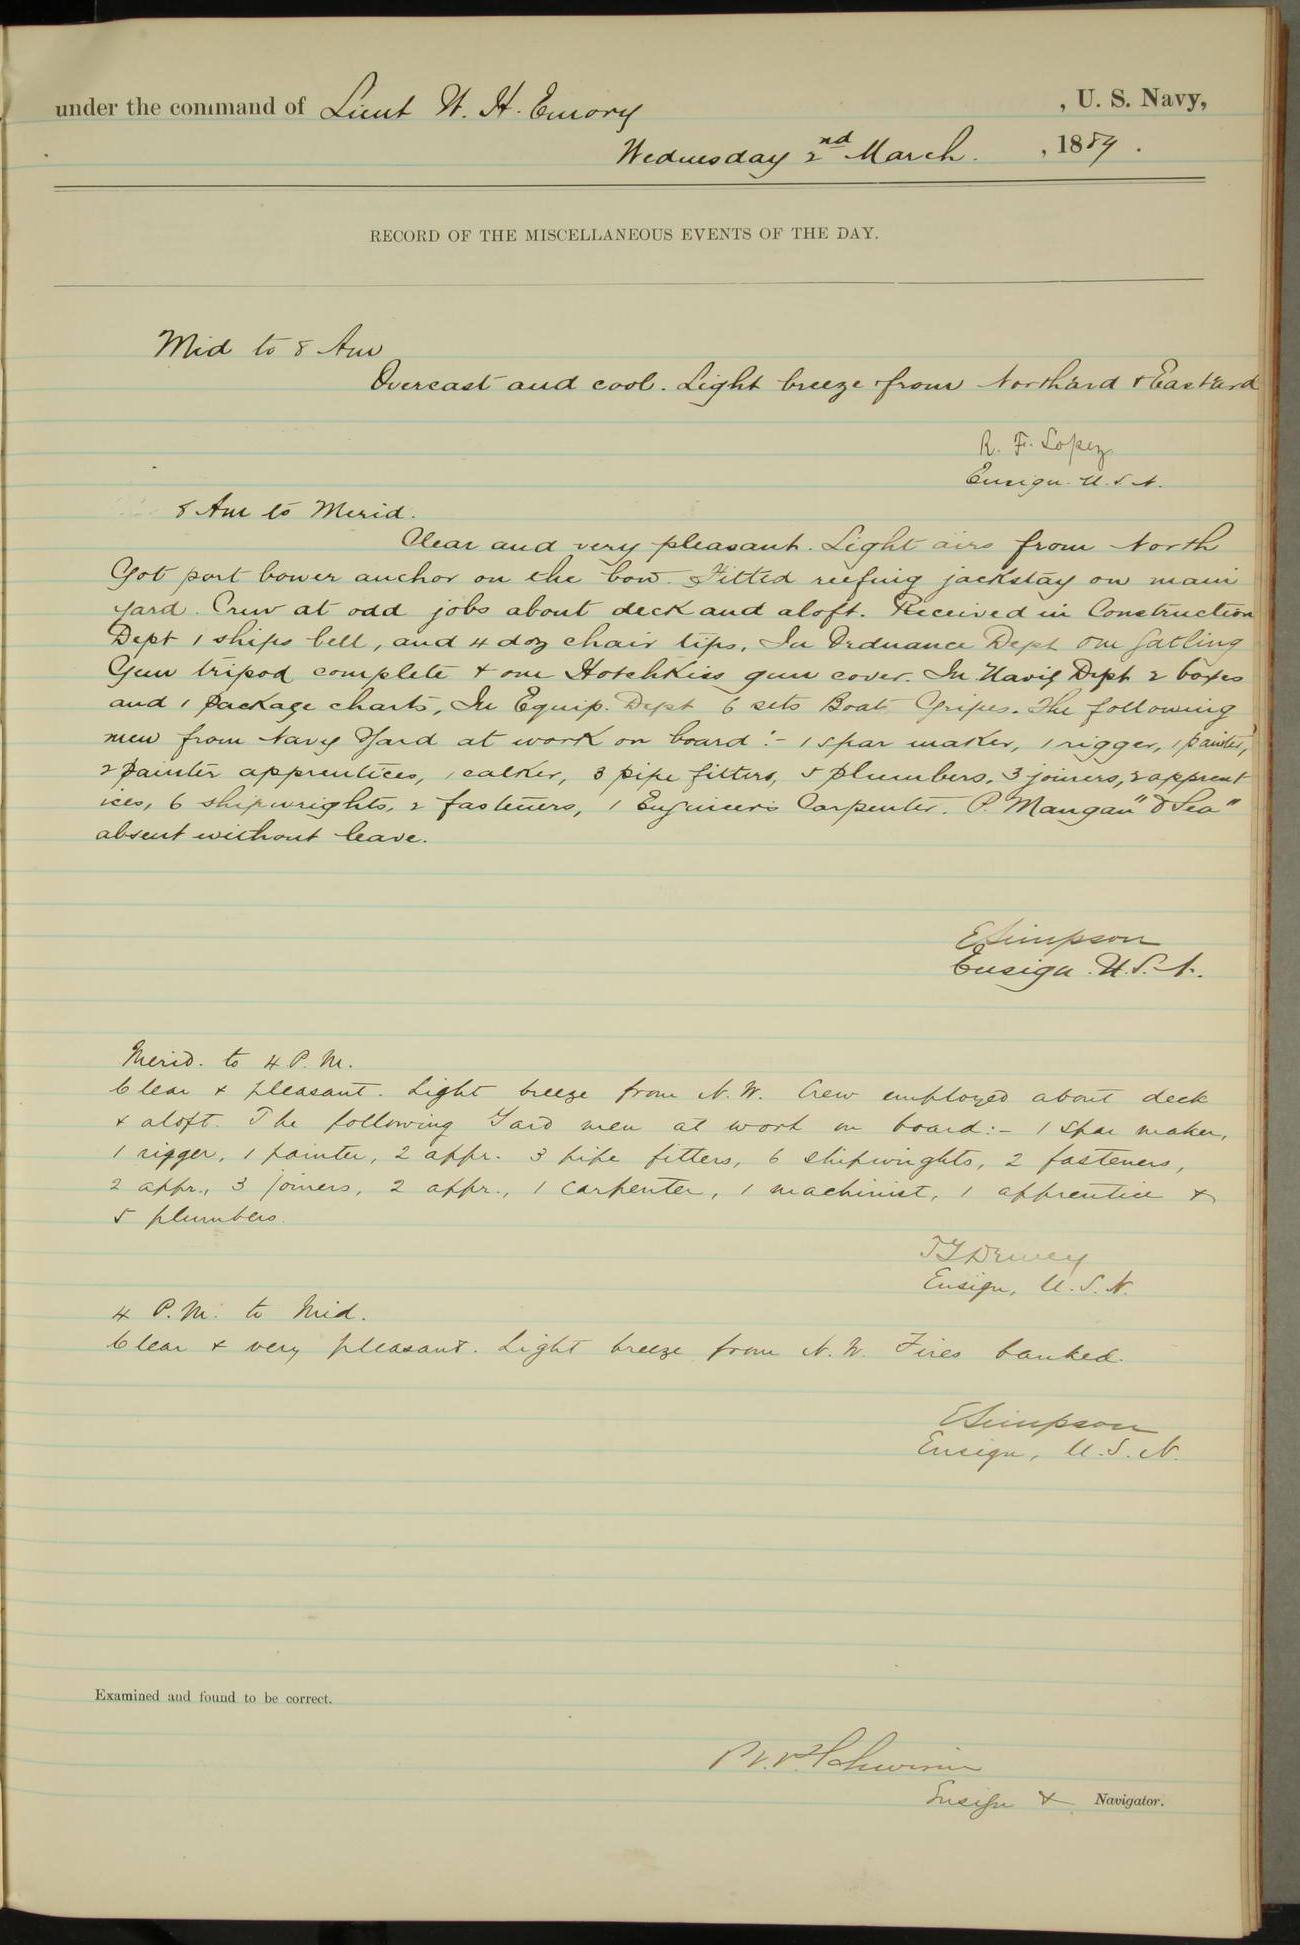 under the command of Lieut W. H. Emory , U. S. Navy,
Wednesday 2nd March. , 1889 .
RECORD OF THE MISCELLANEOUS EVENTS OF THE DAY.
Mid to 8 Am
Overcast and cool. Light breeze from North'ard & East'ard
R. F. Lopez
Ensign. U. S. N.
8 Am to Merid.
Clear and very pleasant. Light airs from North
Got port bower anchor on the bow. Fitted reefing jackstay on main
yard. Crew at odd jobs about deck and aloft. Received in Construction
Dept 1 ships bell, and 4 doz chair tips, In Ordnance Dept one Gatling
Gun tripod complete & one Hotchkiss gun cover. In Navig Dept 2 boxes
and 1 package charts, In Equip. Dept 6 sets Boat Gripes. The following
men from Navy Yard at work on board :- 1 spar maker, 1 rigger, 1 painter,
2 painter apprentices, 1 calker, 3 pipe fitters, 5 plumbers, 3 joiners, 2 apprent
ices, 6 shipwrights, 2 fasteners, 1 Engineer's Carpenter. P. Mangan
absent without leave.
E Simpson
Ensign. U. S. N.
Merid. to 4 P. M.
Clear & pleasant. Light breeze from N. W. Crew employed about deck
& aloft. The following Yard men at work on board:- 1 spar maker,
1 rigger, 1 painter, 2 appr. 3 pipe fitters, 6 shipwrights, 2 fasteners,
2 appr., 3 joiners, 2 appr., 1 carpenter, 1 machinist, 1 apprentice &
5 plumbers.
T G Dewey
Ensign, U. S. N.
4 P. M. to Mid.
Clear & very pleasant. Light breeze from N. W. Fires banked.
E Simpson
Ensign, U. S. N.
Examined and found to be correct.
Schwerin
Ensign & Navigator.